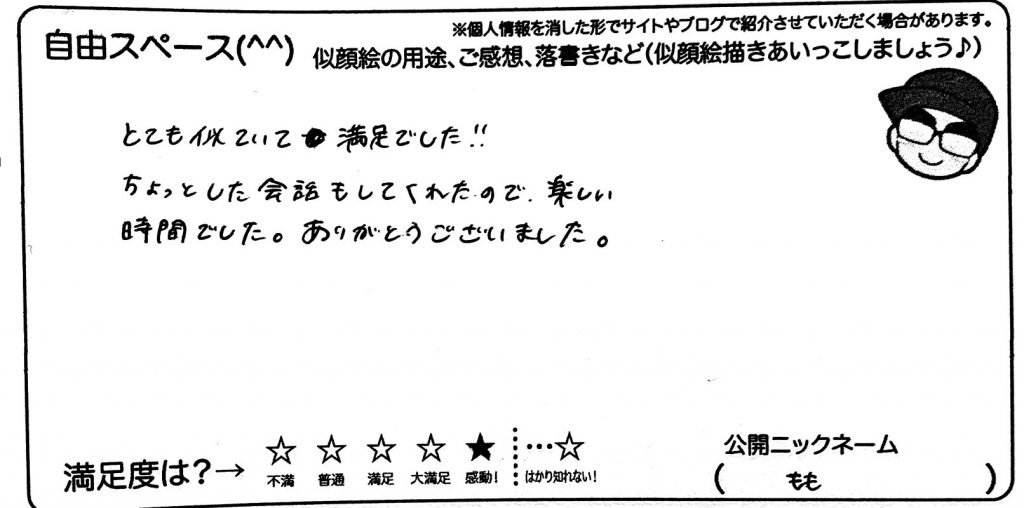 ※個人情報を消した形でサイトやブログで紹介させていただく場合があります。
自由スペース(^^) 似顔絵の用途、ご感想、落書きなど(似顔絵描きあいっこしましょう♪)
とても似ていて満足でした!!
ちょっとした会話もしてくれたので、楽しい
時間でした。ありがとうございました。
満足度は?→ ☆ ☆ ☆ ☆ ★ …☆
不満 普通 満足 大満足 感動! はかり知れない!
公開ニックネーム
( もも )